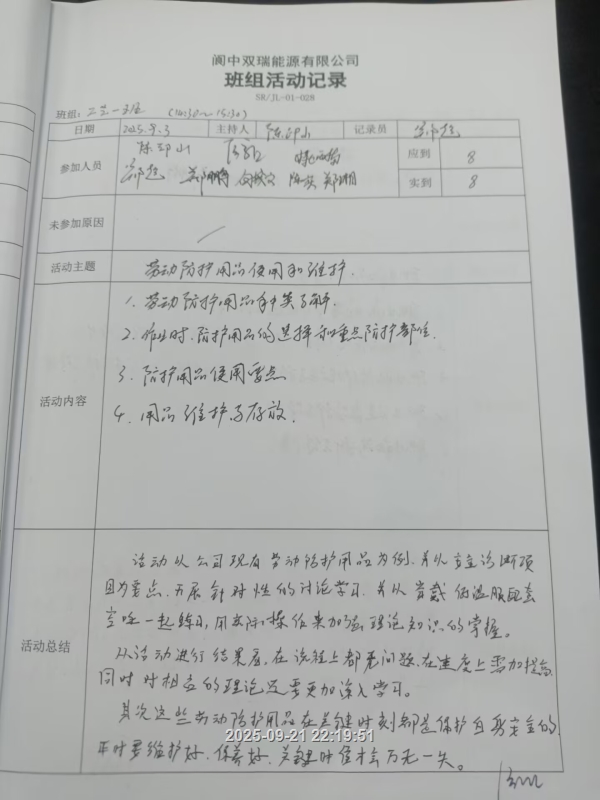 阆中双瑞能源有限公司
班组活动记录
SR/JL-01-028
班组: (14:30~15:30)
日期 2025.9.3 主持人 陈邵山 记录员
参加人员 陈邵山 应到 8
郑 实到 8
未参加原因
活动主题 劳动防护用品使用和维护.
活动内容
1. 劳动防护用品种类了解.
2. 作业时.防护用品的选择和重点防护部位.
3. 防护用品使用要点
4. 用品维护与存放.
活动总结
活动从公司现有劳动防护用品为例,并从 诊断项
目为要点,开展针对性的讨论学习.并从背戴 低温服
一起练习,用实际操作来加强理论知识的掌握。
从活动进行结果看,在流程上都无问题,在速度上需加提高,
同时对相应的理论还要更加深入学习。
其次这些劳动防护用品在关键时刻都是保护自身安全的,
平时要维护好,保养好,关键时 才会万无一失。
2025-09-21 22:19:51